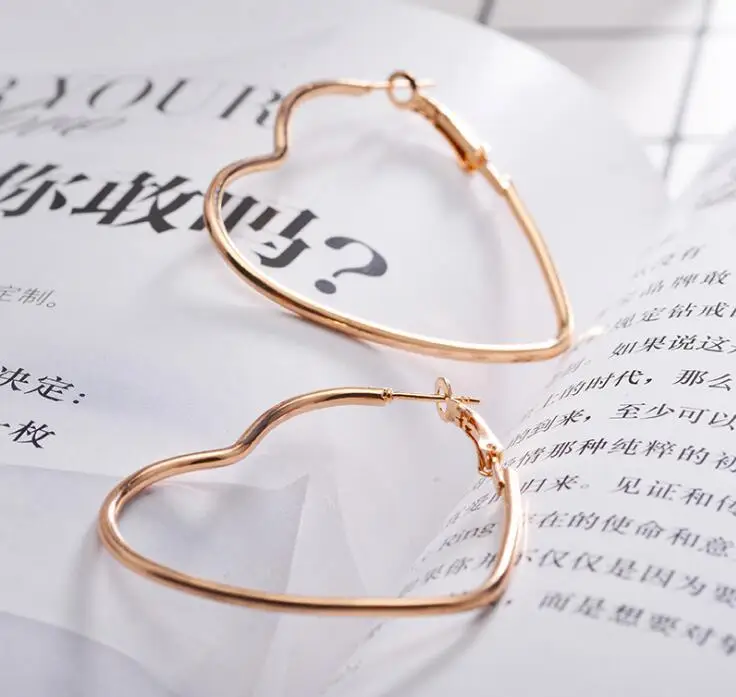 R YOUR
Love
你敢吗?
定制。
决定:
一枚
没有
品牌敢
规定钻戒的
如果说这
上的时代，那么
的到来，至少可以
情那种纯粹的初
归来。见证和传
Ring 存在的使命和意
果你并不仅仅是因为要
而是想要对